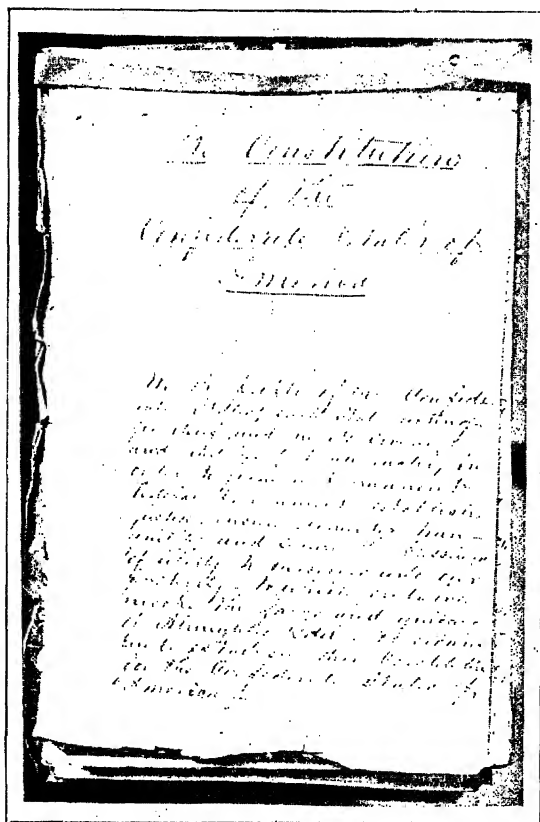 The Constitution
of the
Confederate States of
America
We the People of the Confede-
rate States, each State acting
for itself, and in its
and in
order to form a permanent
Federal Government, establish
justice, insure domestic tran-
and secure the blessings
of liberty to ourselves and our
posterity, 
invoke the favor and guidance
of Almighty God, do ordain
and establish this Constitution
for the Confederate States of
America